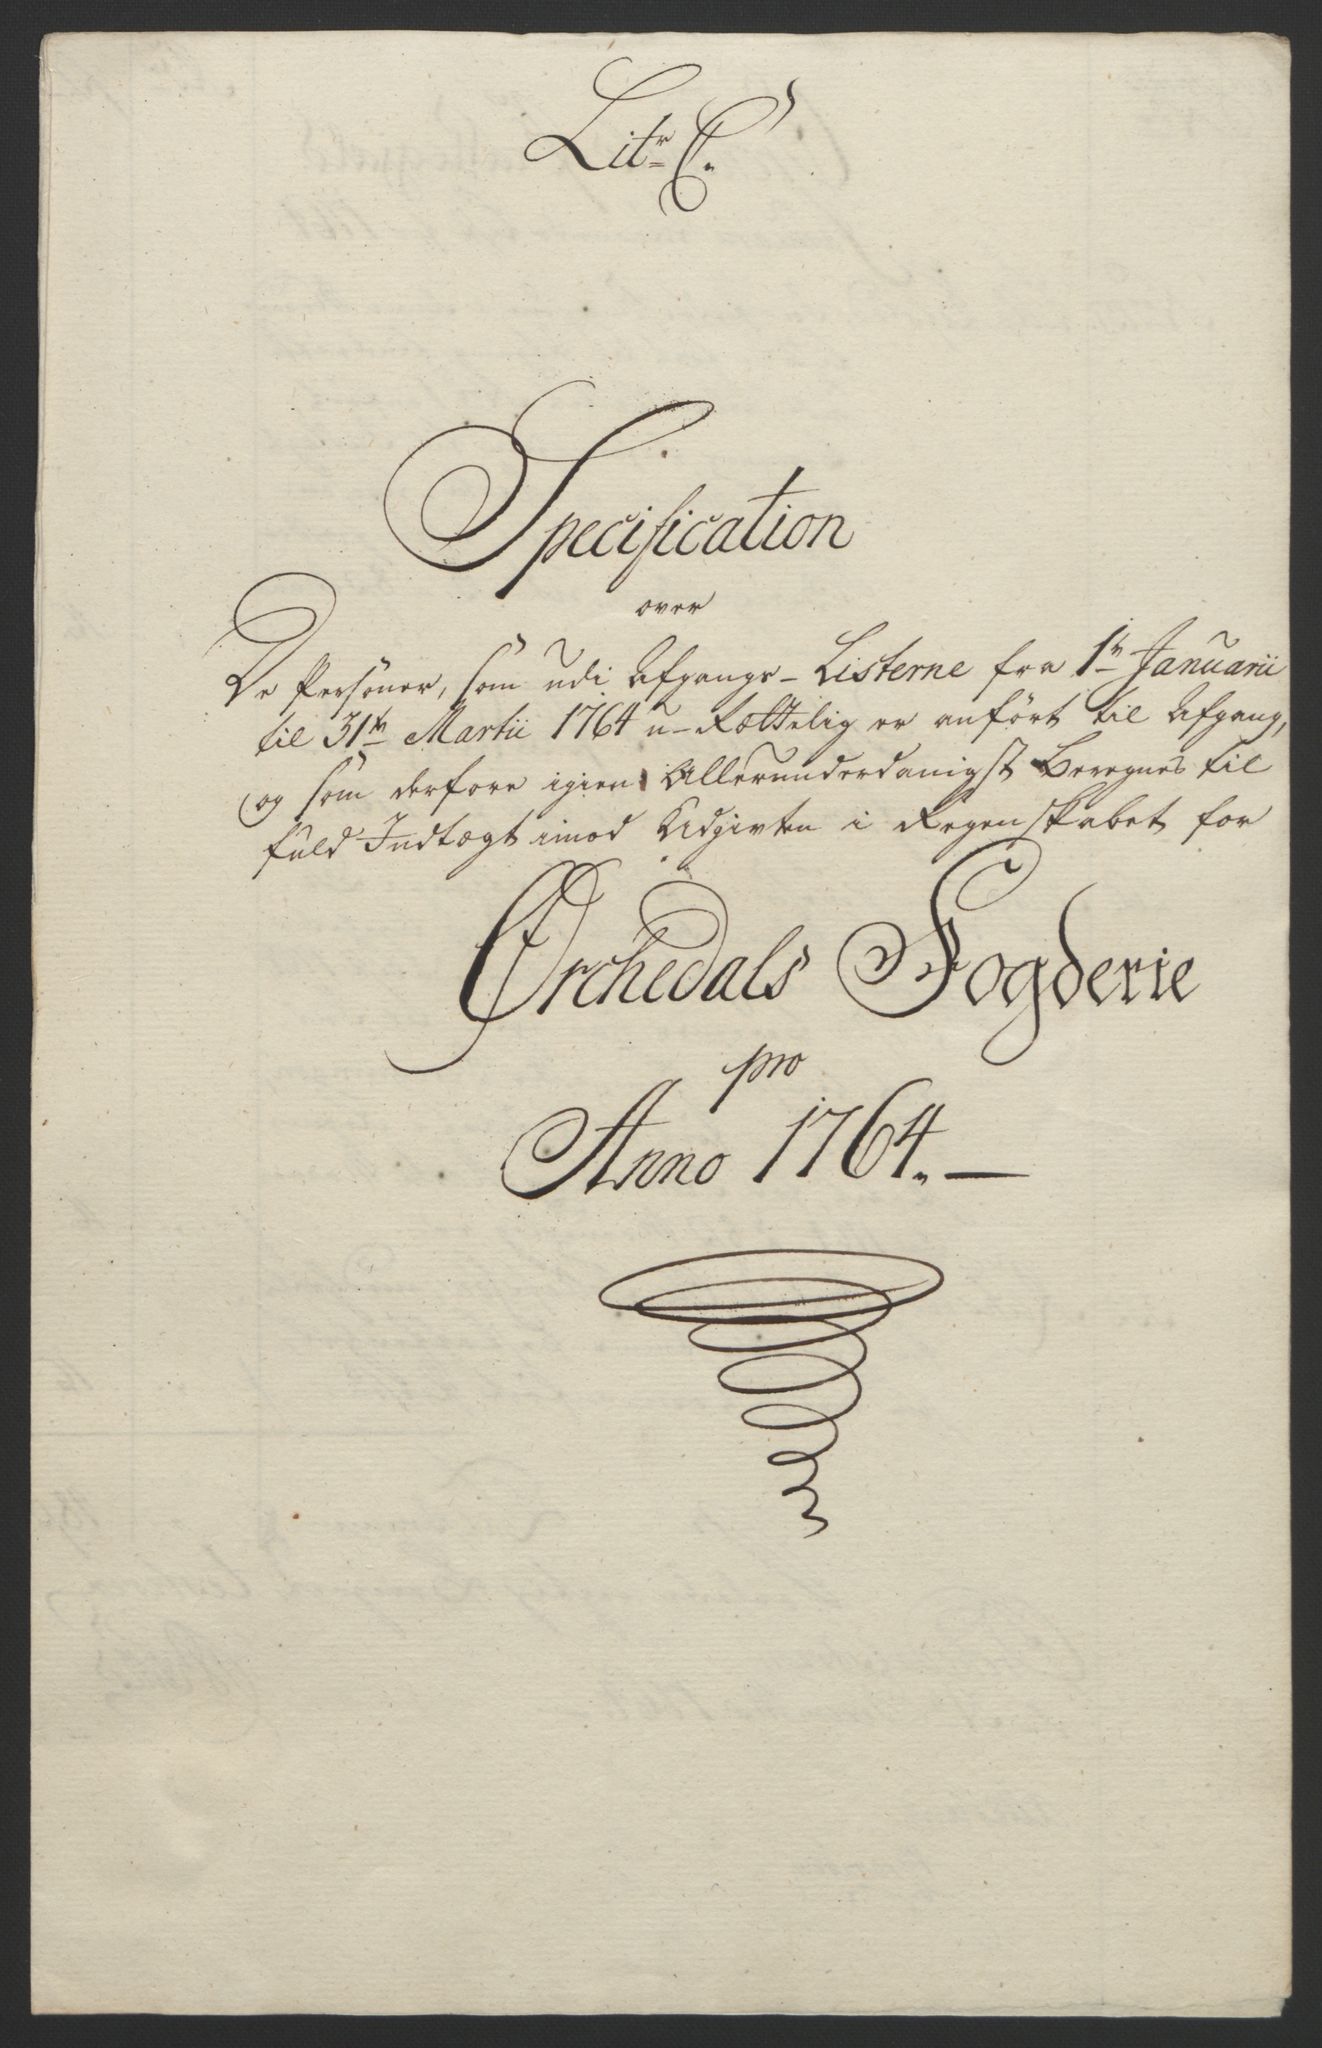 Litr C.
Specification
over
De Personer, som udi Afgangs-Listerne fra 1te Januarii
til 31te Martii 1764 u-Rættelig er anført til Afgang,
og som derfore igien Allerunderdanigst Beregnes til
fuld Indtægt imod Udgivten i Regenskabet for
Orchedals Fogderie
pro
Anno 1764.